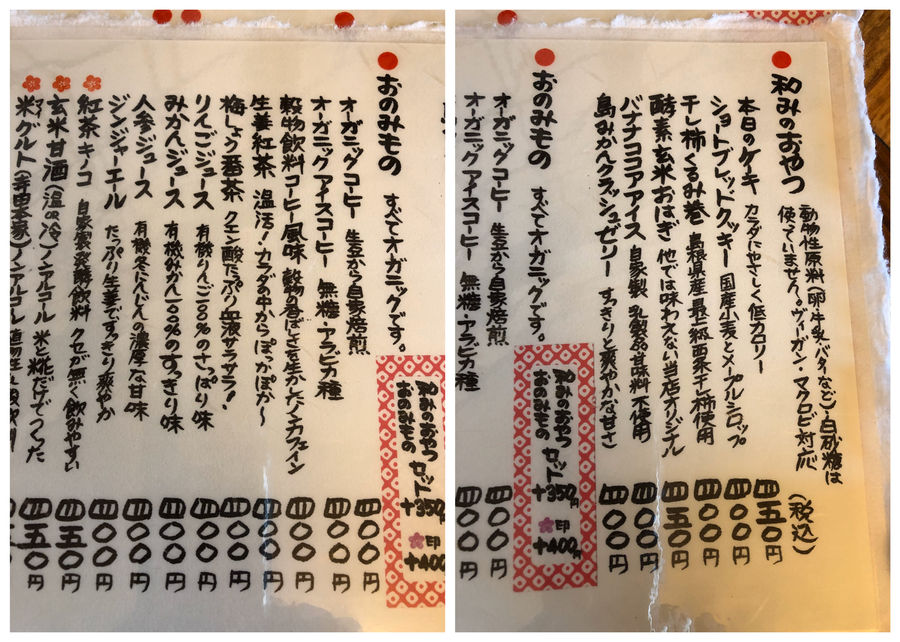 おのみもの すべてオーガニックです。
オーガニックコーヒー 生豆から自家焙煎 四〇〇円
オーガニックアイスコーヒー 無糖・アラビカ種 四〇〇円
穀物飲料コーヒー風味 穀物の香ばしさを生かしたノンカフェイン 四〇〇円
生姜紅茶 温活!カラダの中からぽっかぽか〜 四〇〇円
梅しょう番茶 クエン酸たっぷり血液サラサラ! 四〇〇円
りんごジュース 有機りんご100%のさっぱり味 四〇〇円
みかんジュース 有機みかん100%のすっきり味 四〇〇円
人参ジュース 有機冬にんじんの濃厚な甘味 四〇〇円
ジンジャーエール たっぷり生姜ですっきり爽やか 四〇〇円
紅茶キノコ 自家製発酵飲料 クセが無く飲みやすい 四五〇円
玄米甘酒(温or冷)ノンアルコール 米と糀だけでつくった 四五〇円
米グルト(寺田本家)ノンアルコール
和みのおやつ
おのみもの
セット+350円
印+400
和みのおやつ
動物性原料(卵・牛乳・バターなど)・白砂糖は
使っていません。ヴィーガン・マクロビ対応
(税込)
本日のケーキ カラダにやさしく低カロリー 四五〇円
ショートブレッドクッキー 国産小麦とメープルシロップ 四〇〇円
干し柿くるみ巻 島根県産最高級西条干し柿使用 四〇〇円
酵素玄米おはぎ 他では味わえない当店オリジナル 四五〇円
バナナココアアイス 自家製 乳製品・甘味料不使用 四〇〇円
島みかんクラッシュゼリー すっきりと爽やかな甘さ 四〇〇円
おのみもの すべてオーガニックです。
和みのおやつ
おのみもの
セット+350円
印+400円
オーガニックコーヒー 生豆から自家焙煎 四〇〇円
オーガニックアイスコーヒー 無糖・アラビカ種 四〇〇円